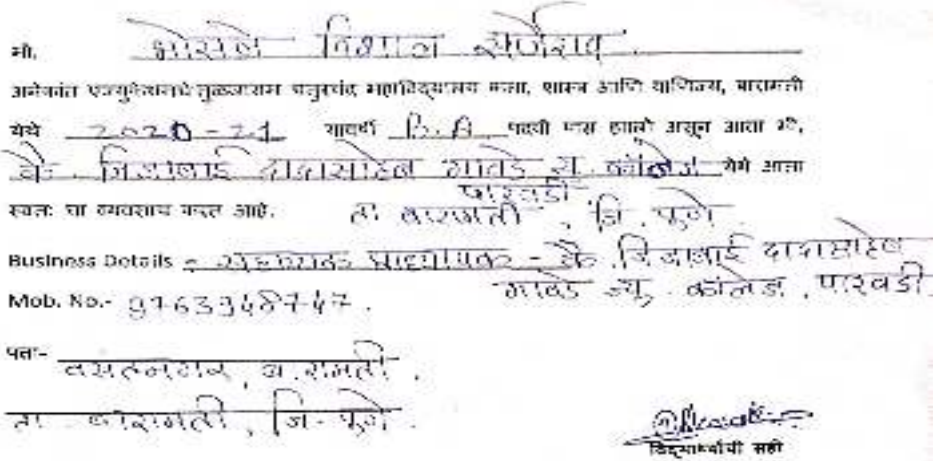 मी, भोसले विशाल सर्जेराव
अनेकांत एज्युकेशनचे तुळजाराम चतुरचंद महाविद्यालय कला, शास्त्र आणि वाणिज्य, बारामती
येथे 2020-21 साली B.A पदवी पास झालो असून आता मी,
कै. जिजाबाई दादासाहेब गावडे ज्यु. कॉलेज येथे आता
पारवडी
स्वतः चा व्यवसाय करत आहे. ता बारामती, जि. पुणे.
Business Details - सहाय्यक प्राध्यापक - कै. जिजाबाई दादासाहेब
गावडे ज्यु. कॉलेज, पारवडी.
Mob. No.- 9763948747.
पत्ता- वसंतनगर, बारामती,
ता - बारामती, जि - पुणे.
विद्यार्थ्याची सही